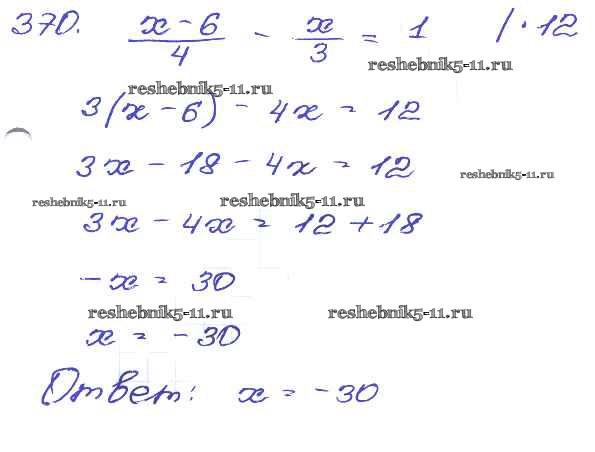 370. (x - 6)/4 - x/3 = 1 | · 12
reshebnik5-11.ru
reshebnik5-11.ru
3(x - 6) - 4x = 12
3x - 18 - 4x = 12
reshebnik5-11.ru
reshebnik5-11.ru reshebnik5-11.ru
3x - 4x = 12 + 18
-x = 30
reshebnik5-11.ru reshebnik5-11.ru
x = -30
Ответ: x = -30